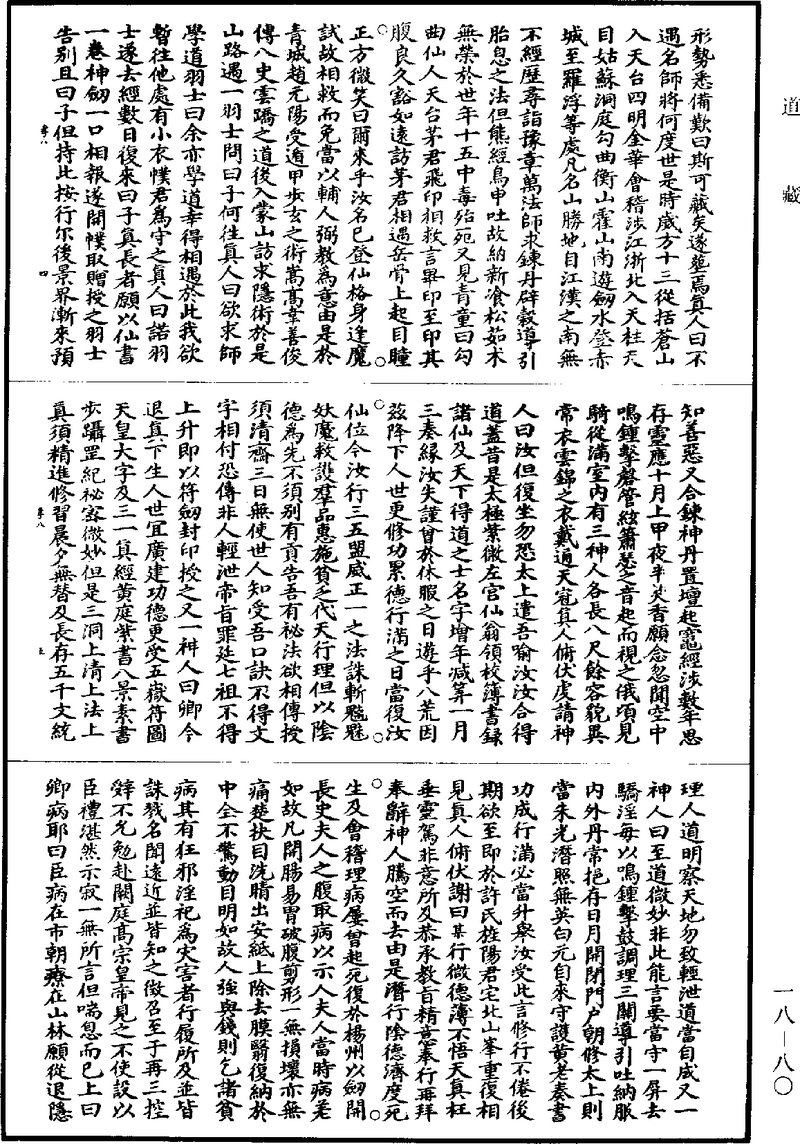 道藏
形勢悉備歎曰斯可藏矣遂塟焉真人曰不
遇名師將何度世是時歲方十三從括蒼山
入天台四明金華會稽涉江浙北入天柱天
目姑蘇洞庭勾曲衡山霍山南遊劒水登赤
城至羅浮等處凡名山勝地自江漢之南無
不經歷尋詣豫章萬法師求鍊丹辟穀導引
胎息之法但熊經鳥申吐故納新飡松茹朮
無榮於世年十五中毒殆死又見青童曰勾
曲仙人天台茅君飛印相救言畢印至印其
腹良久豁如遠訪茅君相遇岳骨上起目瞳
正方微笑曰爾來乎汝名已登仙格身逢魔
試故相救而免當以輔人弼教為意由是於
青城趙元陽受遁甲步玄之術嵩髙韋善俊
傳八史雲蹻之道後入蒙山訪求隱術於是
山路遇一羽士問曰子何往真人曰欲求師
學道羽士曰余亦學道幸得相遇於此我欲
暫往他處有小衣幞君為守之真人曰諾羽
士遂去經數日復來曰子真長者願以仙書
一卷神劒一口相報遂開幞取贈授之羽士
告别且曰子但持此按行尔後景界漸來預
知善惡又合鍊神丹置壇起竈經涉數年思
存靈應十月上甲夜半炷香願念忽聞空中
鳴鍾擊磬管絃簫瑟之音起而視之俄頃見
騎從滿室内有三神人各長八尺餘容貌異
常衣雲錦之衣戴通天冠真人俯伏虔請神
人曰汝但復坐勿恐太上遣吾喻汝汝合得
道蓋昔是太極紫微左宫仙翁領校簿書錄
諸仙及天下得道之士名字增年減筭一月
三奏縁汝失謹曾於休服之日遊乎八荒因
兹降下人世更修功累德行滿之日當復汝
仙位今汝行三五盟威正一之法誅斬魑魅
妖魔救護羣品惠施貧乏代天行理但以陰
德為先不須别有貢告吾有祕法欲相傳授
須清齋三日無使世人知受吾口訣不得文
字相付恐傳非人輕泄帝旨罪延七祖不得
上升即以符劒封印授之又一神人曰卿今
退真下生人世宜廣建功德更受五嶽符圖
天皇大字及三一真經黄庭紫書八景素書
步躡罡紀祕密微妙但是三洞上清上法上
真須精進修習晨夕無替及長存五千文統
理人道明察天地勿致輕泄道當自成又一
神人曰至道微妙非此能言要當守一屏去
驕淫每以鳴鍾擊鼓調理三關導引吐納服
内外丹常挹存日月開閉門戸朝修太上則
當朱光潛照無英白元自來守護黄老奏書
功成行滿必當升舉汝受此言修行不倦後
期欲至即於許氏旌陽君宅北山峯重復相
見真人俯伏謝曰某行微德薄不悟天真枉
垂靈駕非意所及恭承教旨精意奉行再拜
奉辭神人騰空而去由是潛行陰德濟度死
生及會稽理病屢曾起死復於楊州以劒開
長史夫人之腹取病以示人夫人當時病差
如故凡開腸易胃破腹剪形一無損壞亦無
痛楚抉目洗睛出安紙上除去膜翳復納於
中全不驚動目明如故人強與錢則乞諸貧
病其有狂邪淫祀為灾害者行履所及並皆
誅戮名聞遠近並皆知之徴召至于再三控
辭不允勉赴闕庭髙宗皇帝見之不使設以
臣禮湛然示寂一無所言但喘息而已上曰
卿病耶曰臣病在市朝療在山林願從退隱
一八—八〇